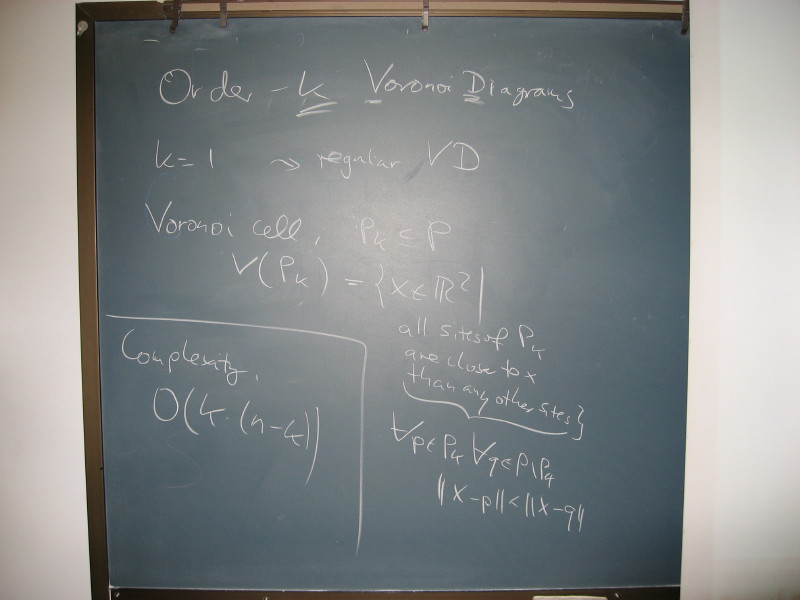 Order-k Voronoi Diagrams
k=1 ⇝ regular VD
Voronoi cell, Pk ⊆ P
V(Pk) = {x∈ℝ² |
all sites of Pk
are close to x
than any other sites}
∀p∈Pk ∀q∈P\Pk
||x-p||<||x-q||
Complexity,
O(k·(n-k))